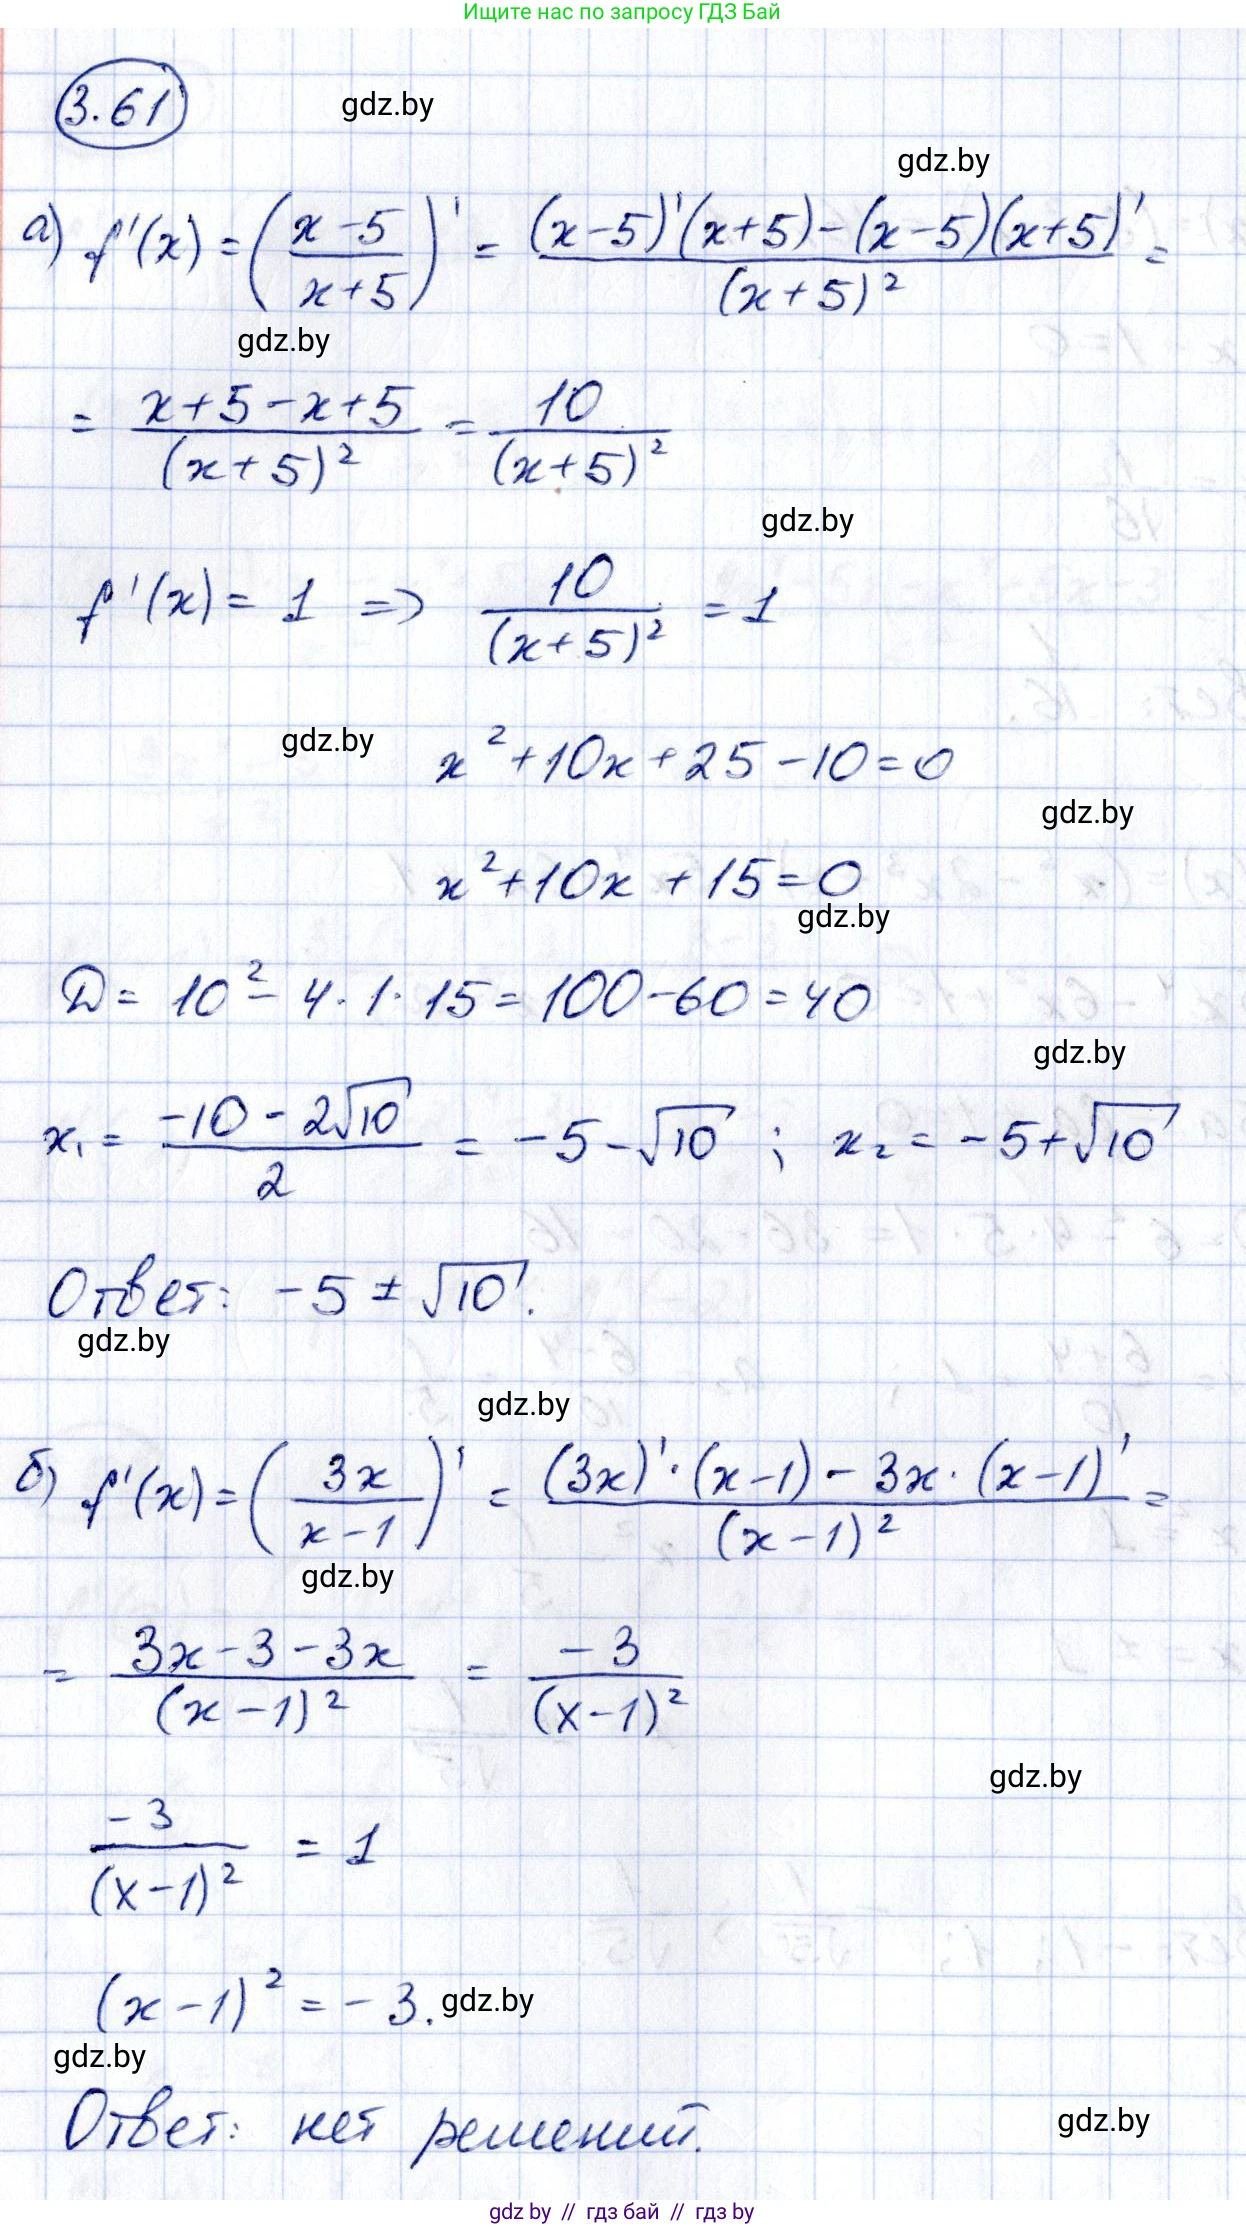 Ищите нас по запросу ГДЗ Бай
3.61
gdz.by
gdz.by
а) f'(x) = ((x-5)/(x+5))' = ((x-5)'(x+5)-(x-5)(x+5)')/(x+5)² =
gdz.by
= (x+5-x+5)/(x+5)² = 10/(x+5)²
gdz.by
f'(x) = 1 => 10/(x+5)² = 1
gdz.by
x²+10x+25-10=0
gdz.by
x²+10x+15=0
gdz.by
D = 10² - 4·1·15 = 100-60 = 40
gdz.by
x₁ = (-10-2√10)/2 = -5-√10 ; x₂ = -5+√10
Ответ: -5 ± √10.
gdz.by
gdz.by
б) f'(x) = (3x/(x-1))' = ((3x)'·(x-1) - 3x·(x-1)')/(x-1)² =
gdz.by
= (3x-3-3x)/(x-1)² = -3/(x-1)²
gdz.by
-3/(x-1)² = 1
(x-1)² = -3.
gdz.by
gdz.by
Ответ: нет решений.
gdz.by
gdz by // гдз бай // гдз by